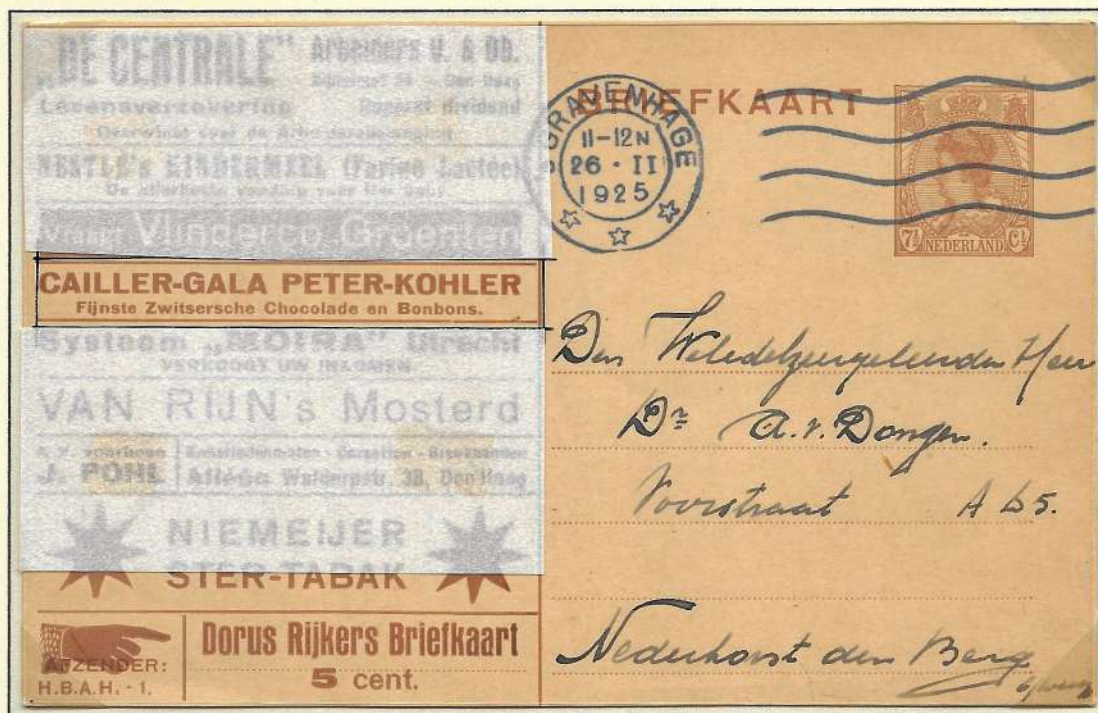 „DE CENTRALE" Arbeiders V. & Db.
Den Haag
Levensverzekering dividend
NESTLE's KINDERMEEL (Farine Lactée)
Groenten
CAILLER-GALA PETER-KOHLER
Fijnste Zwitsersche Chocolade en Bonbons.
Systeem „MOIRA" Utrecht
VERHOOGT UW INKOMEN
VAN RIJN's Mosterd
J. POHL
Den Haag
NIEMEIJER
STER-TABAK
AFZENDER:
H.B.A.H. - 1.
Dorus Rijkers Briefkaart
5 cent.
BRIEFKAART
'S GRAVENHAGE
11-12N
26 · II
1925
7½ NEDERLAND Ct
Den Weledelzeergeleerden Heer
Dr A.v. Dongen.
Voorstraat A 65.
Nederhorst den Berg